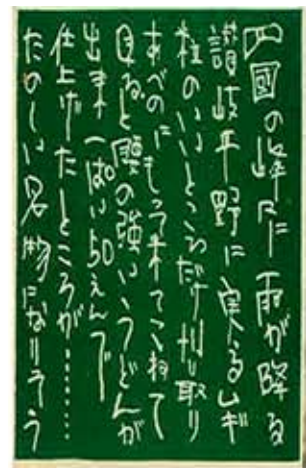 四國の峰々に雨が降る
讃岐平野に実るムギ
粒のいいところだけ刈り取り
あべのにもって来てこねて
見ると腰の強いうどんが
出来一ぱい50えんで
仕上げたところが………
たのしい名物になりそう